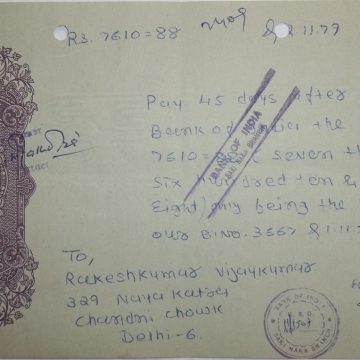 Rs. 7610=88 1.11.79
Pay 45 days after
Bank of India the
7610= seven th
Six Hundred ten &
Eight) only being the
our B.I NO. 3667 & 1.11.7
BANK OF INDIA
To,
Rakeshkumar Vijaykumar
329 Naya Katra
Chandni Chowk
Delhi-6.
BANK OF INDIA
NAKA BRANCH